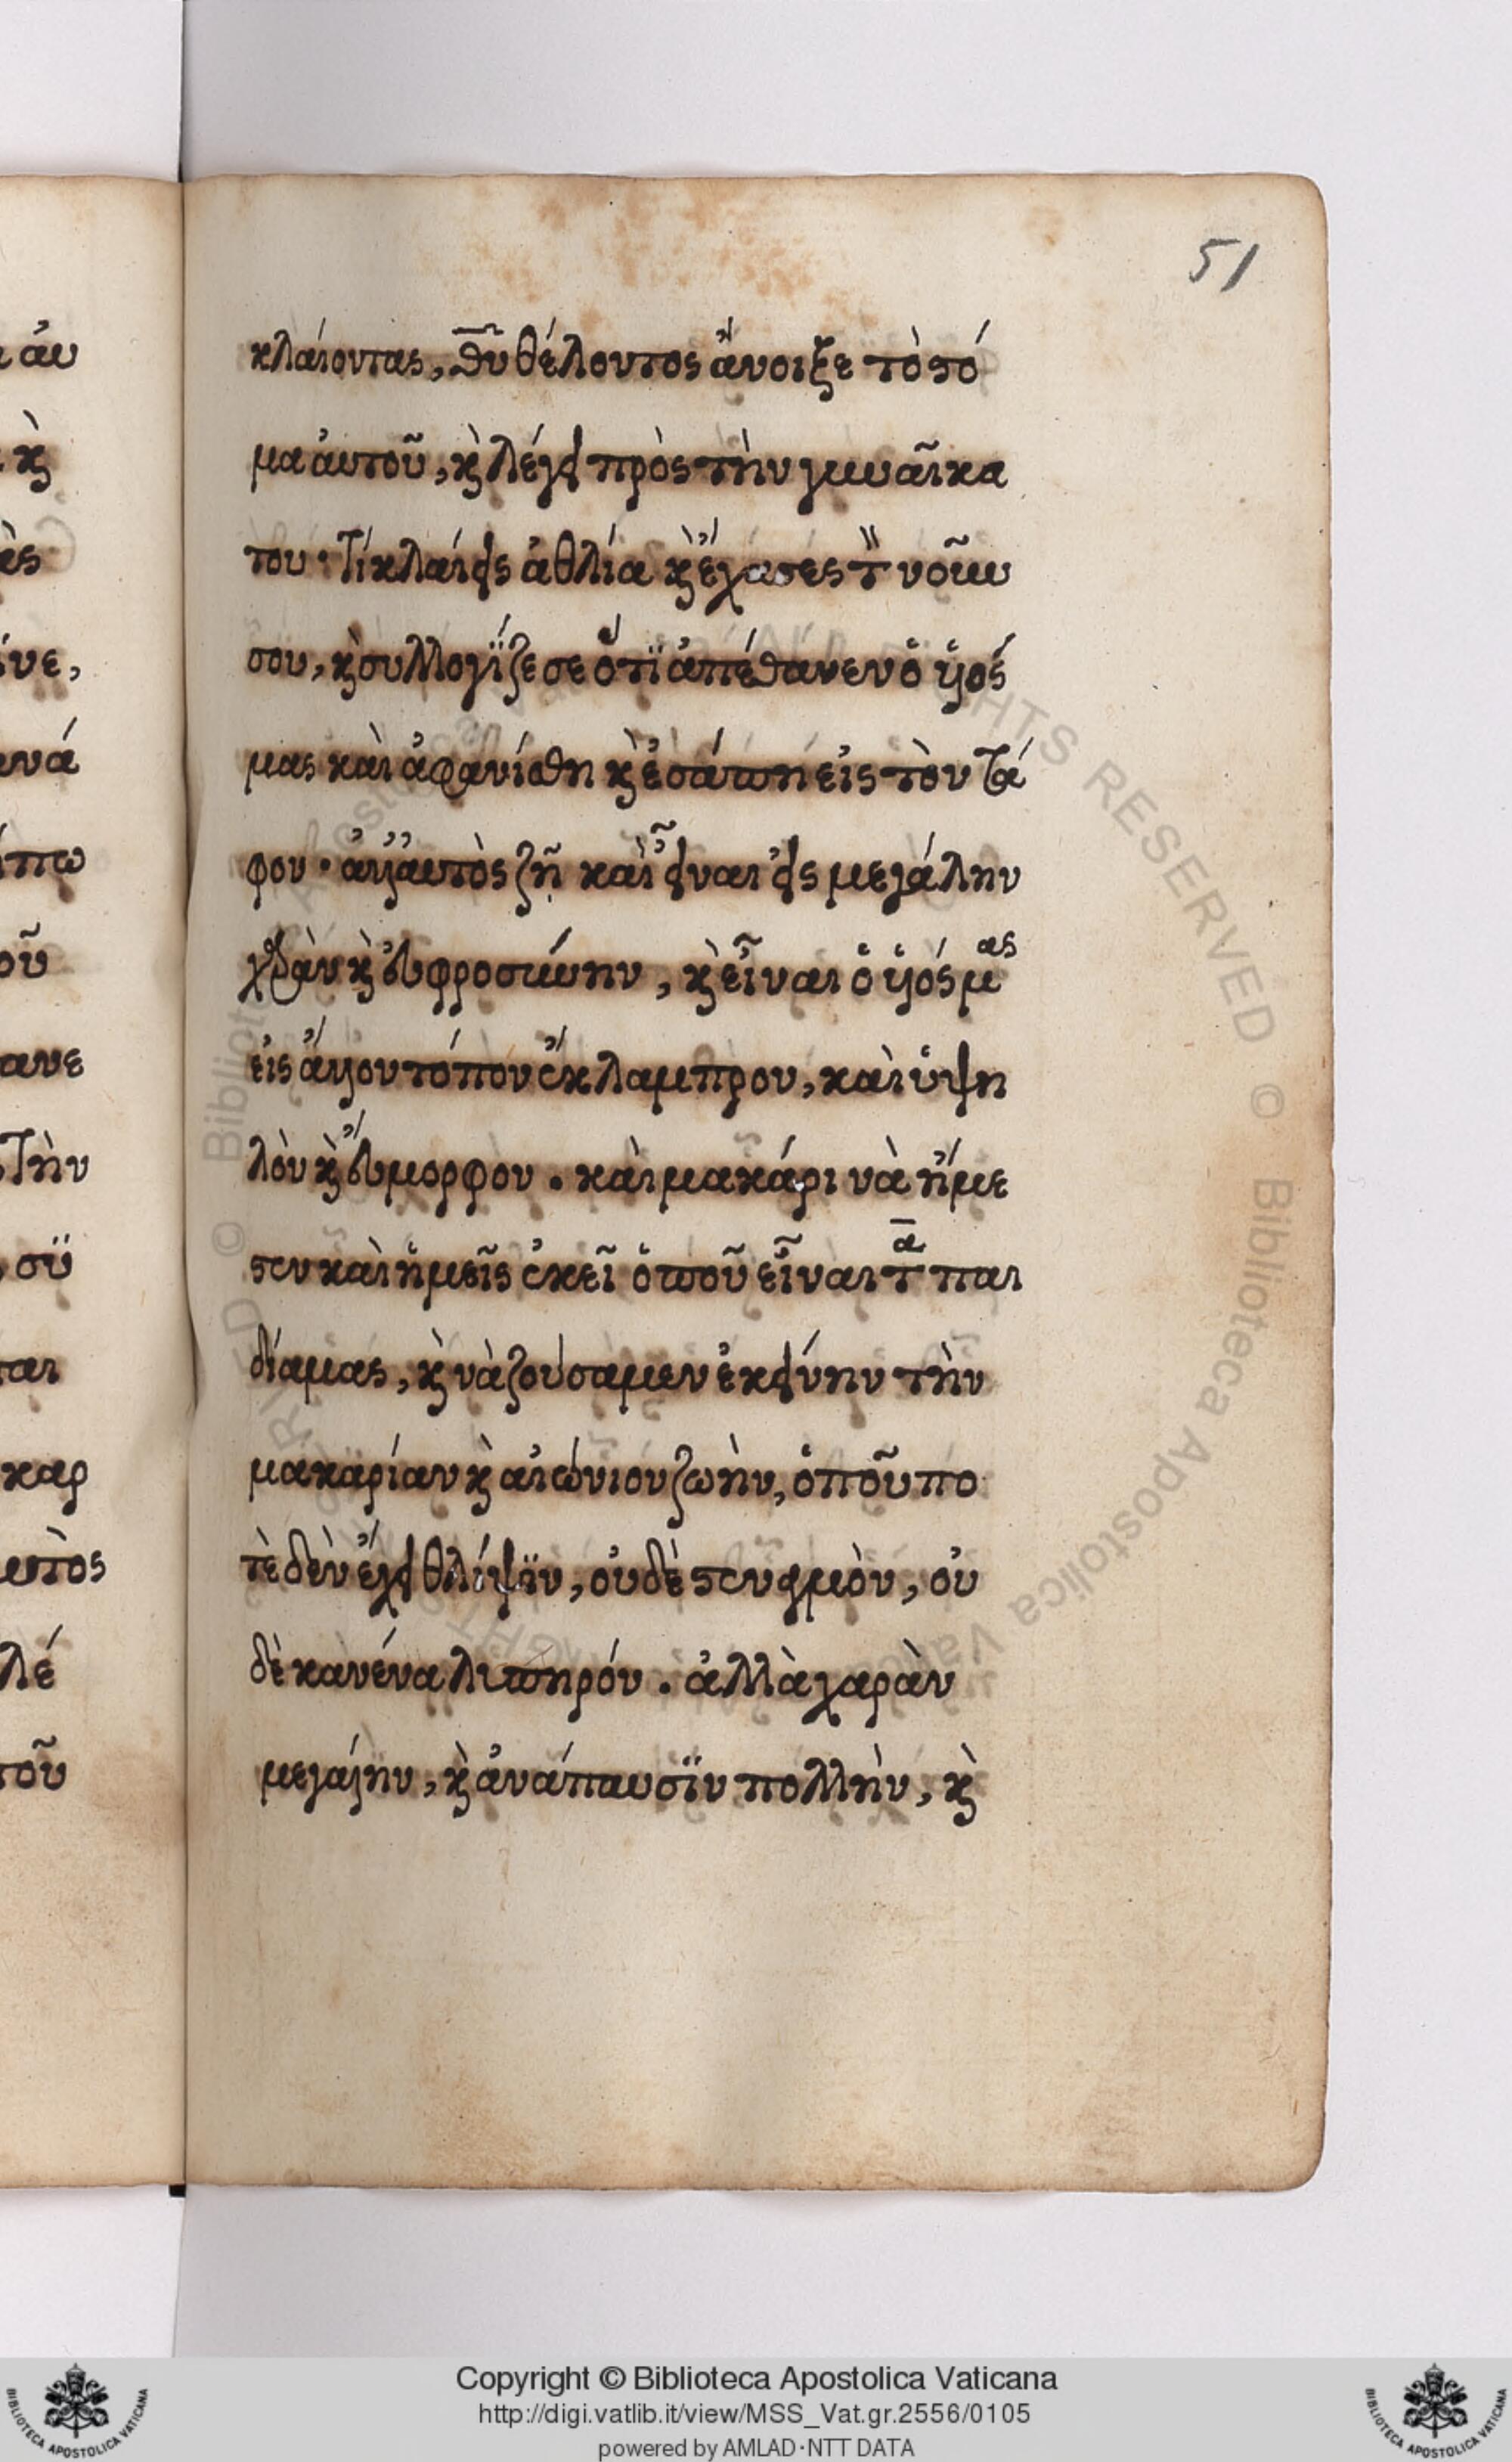 51
κλαίοντας, θῦ θέλοντος ἄνοιξε τὸ στό
μα ἀυτοῦ, κ̀ λέγει πρὸς τὴν γυναῖκα
του· τί κλαίεις ἀθλία κ̀ ἔχασες τ̏ νοῦν
σου, κ̀ συλλογΐζεσε ὅτϊ ἀπέθανεν ὁ ὑιός
μας καὶ ἀφανίσθη κ̀ ἐσάπη εἰς τὸν τά
φον· ἀυτὸς ζῇ καὶ εἶναι εἰς μεγάλην
χαρὰν κ̀ ἐυφροσύνην, κ̀ εἶναι ὁ ὑιός μας
εἰς ἄλλον τόπον ἔκλαμπρον, καὶ ὑψη
λὸν κ̀ ἔυμορφον. καὶ μακάρι νὰ ἤμε
στεν καὶ ἡμεῖς ἐκεῖ ὁποῦ εἶναι τα παι
δία μας, κ̀ νὰ ζούσαμεν ἐκείνην τὴν
μακαρίαν κ̀ αἰώνιον ζωὴν, ὁποῦ πο
τὲ δὲν ἔχει θλίψϊν, οὐδὲ στεναγμὸν, οὐ
δὲ κανένα λυπηρόν. ἀλλὰ χαρὰν
μεγάλην, κ̀ ἀνάπαυσϊν πολλὴν, κ̀
ἀυ
κ̀
ὲς
ίνε,
νά
πω
οῦ
ανε
τὴν
σϋ
παι
καρ
υτὸς
λέ
τοῦ
Copyright © Biblioteca Apostolica Vaticana
http://digi.vatlib.it/view/MSS_Vat.gr.2556/0105
powered by AMLAD·NTT DATA